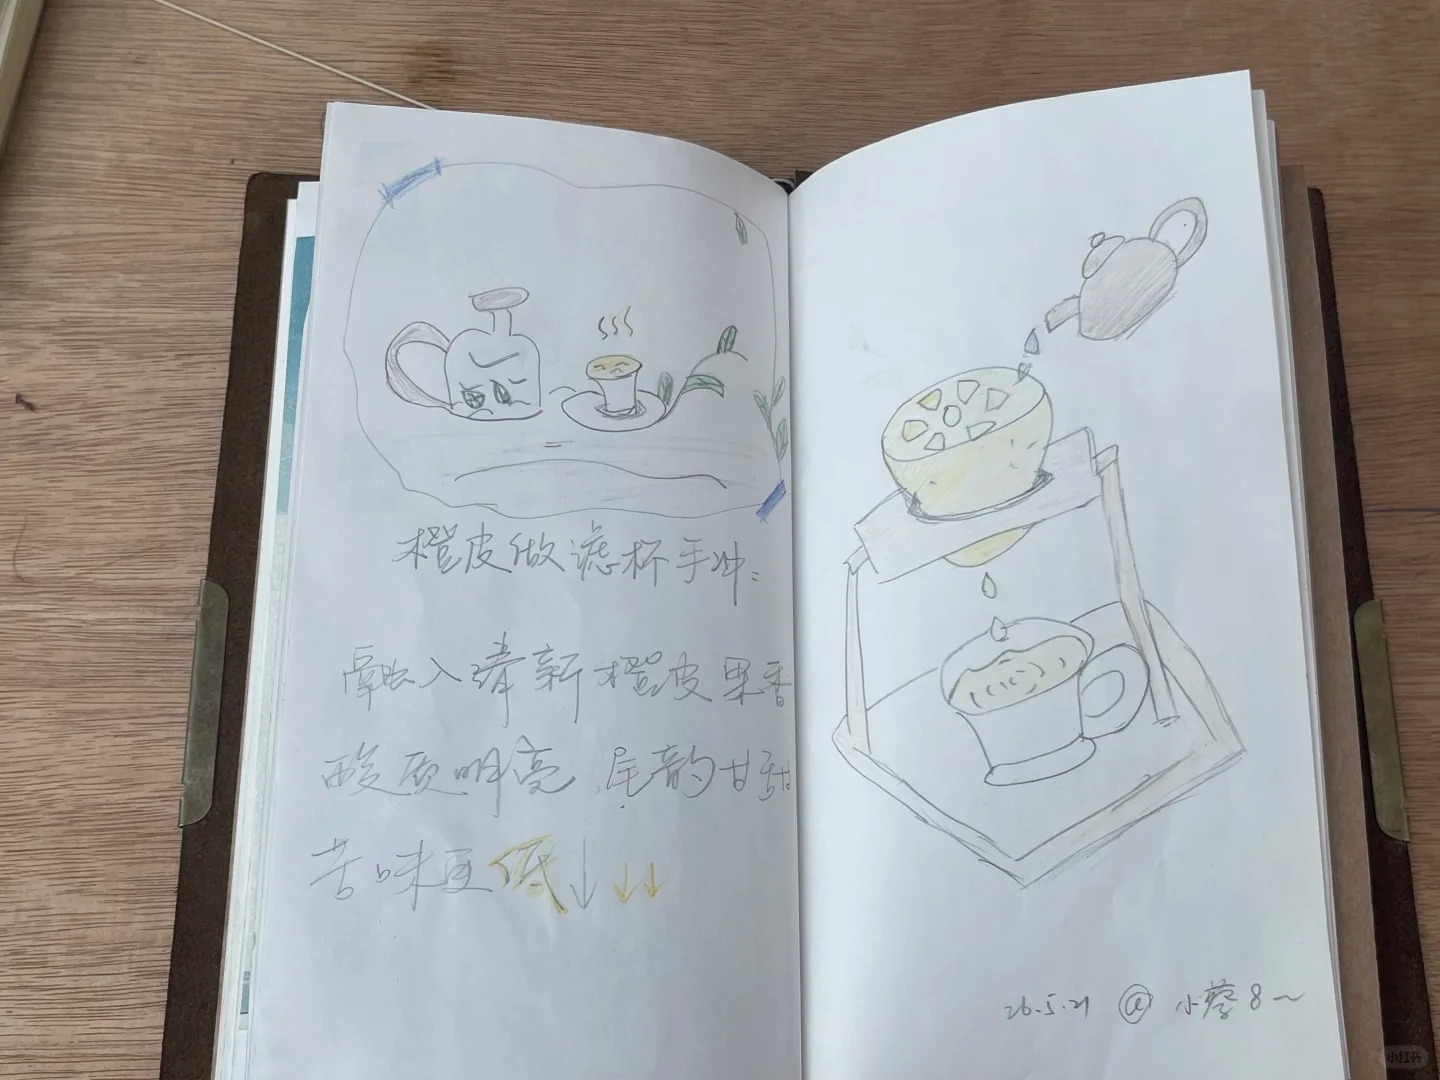 橙皮做滤杯手冲：
融入清新橙皮果香
酸质明亮 尾韵甘甜
苦味更低↓↓↓
26.5.21 @ 小蓉8~
小红书